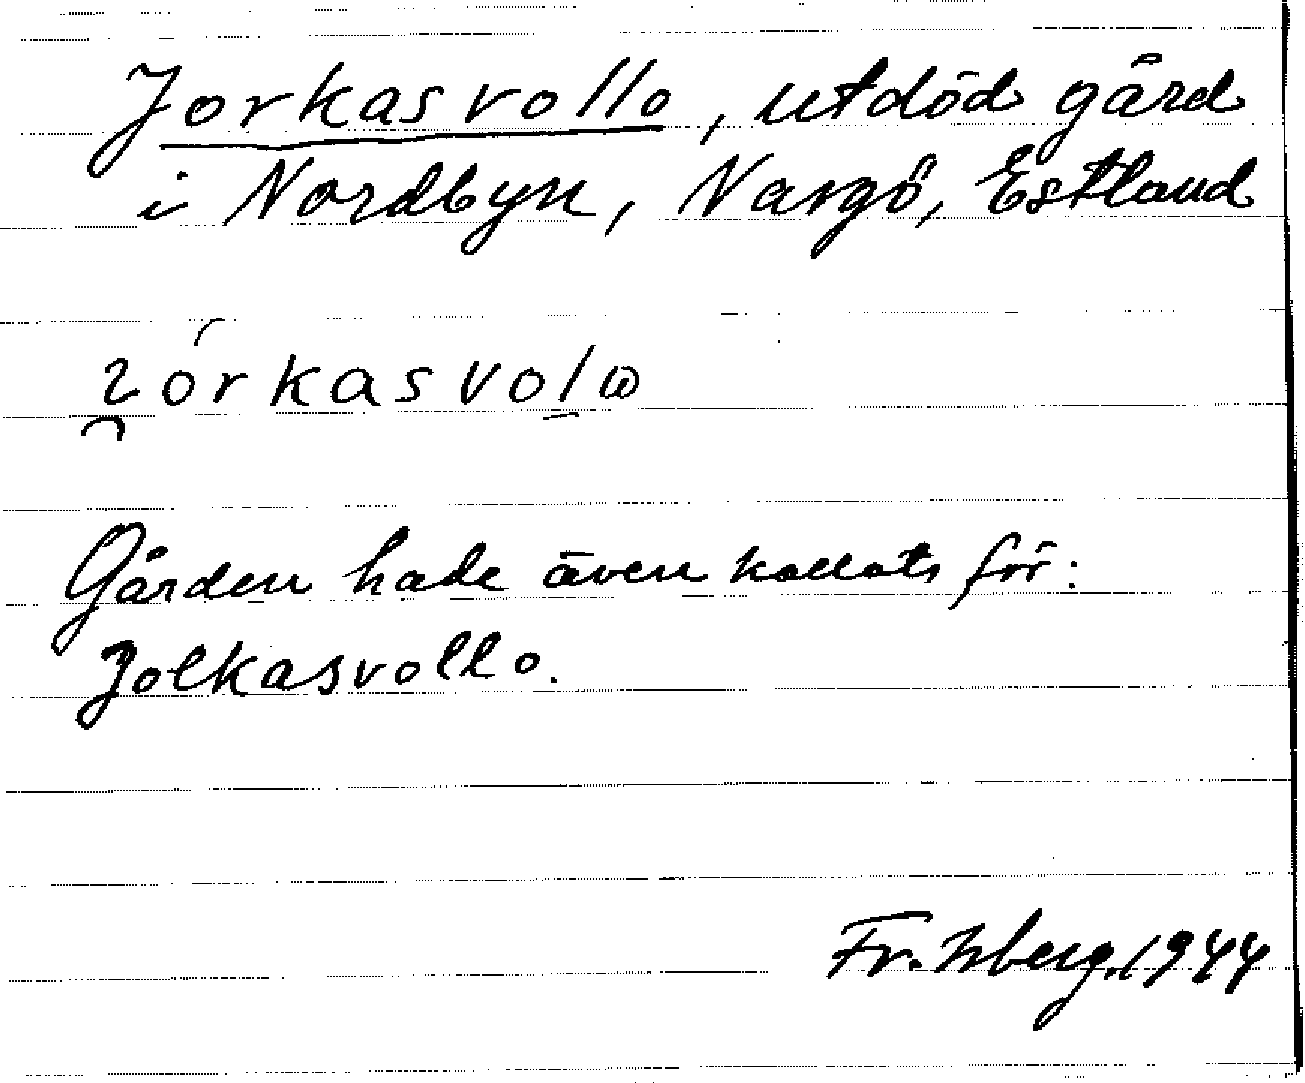 Jorkasvollo, utdöd gård
i Nordbyn, Nargö, Estland
Gården hade även kallats för:
Jolkasvollo.
Fr. Isberg. 1944